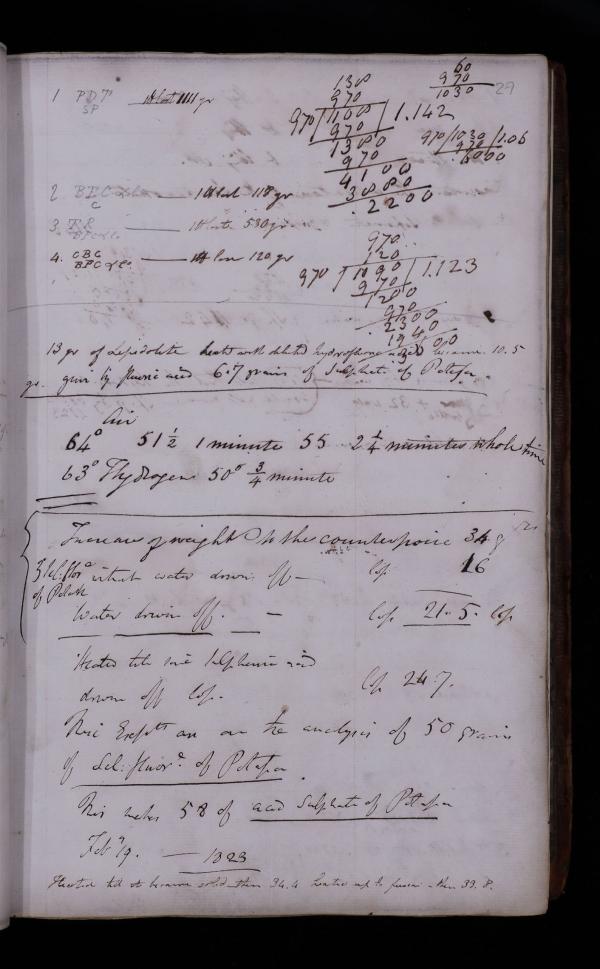 29
1 PDT gr
SP
130
970
970/1100/1.142
970
1380
970
4100
3880
2200
60
970
1030
970/1030/1.06
970
6000
2 BPC 118 gr
C
3. RR 530 gr
4. CBC 120 gr
BPC &c
970
120
970/1090/1.123
970
1200
970
2300
1940
13 gr of Lepidolite heated with diluted became 10.5
gr. giving by fluoric acid 6.7 grains of Sulphate of Potassa.
Air
64° 51½ 1 minute 55 2¼ minutes whole time
63° Hydrogen 50° ¾ minute
Increase of weight to the counterpoise 34 grs
3 Sil: fluor^d what water drawn off — Cop. 16
of Potash
Water drawn off. — Cop 21.5. Cop
Heated with some Sulphuric acid
drawn off Cop. Cop 24.7.
This Exp^tt on the analysis of 50 grains
of Sil: fluor^d. of Potassa
This makes 58 of acid Sulphate of Potassa
Feb^y 19. — 1823
Heated till it became solid then 34.4 heated up to fusion then 33.8.